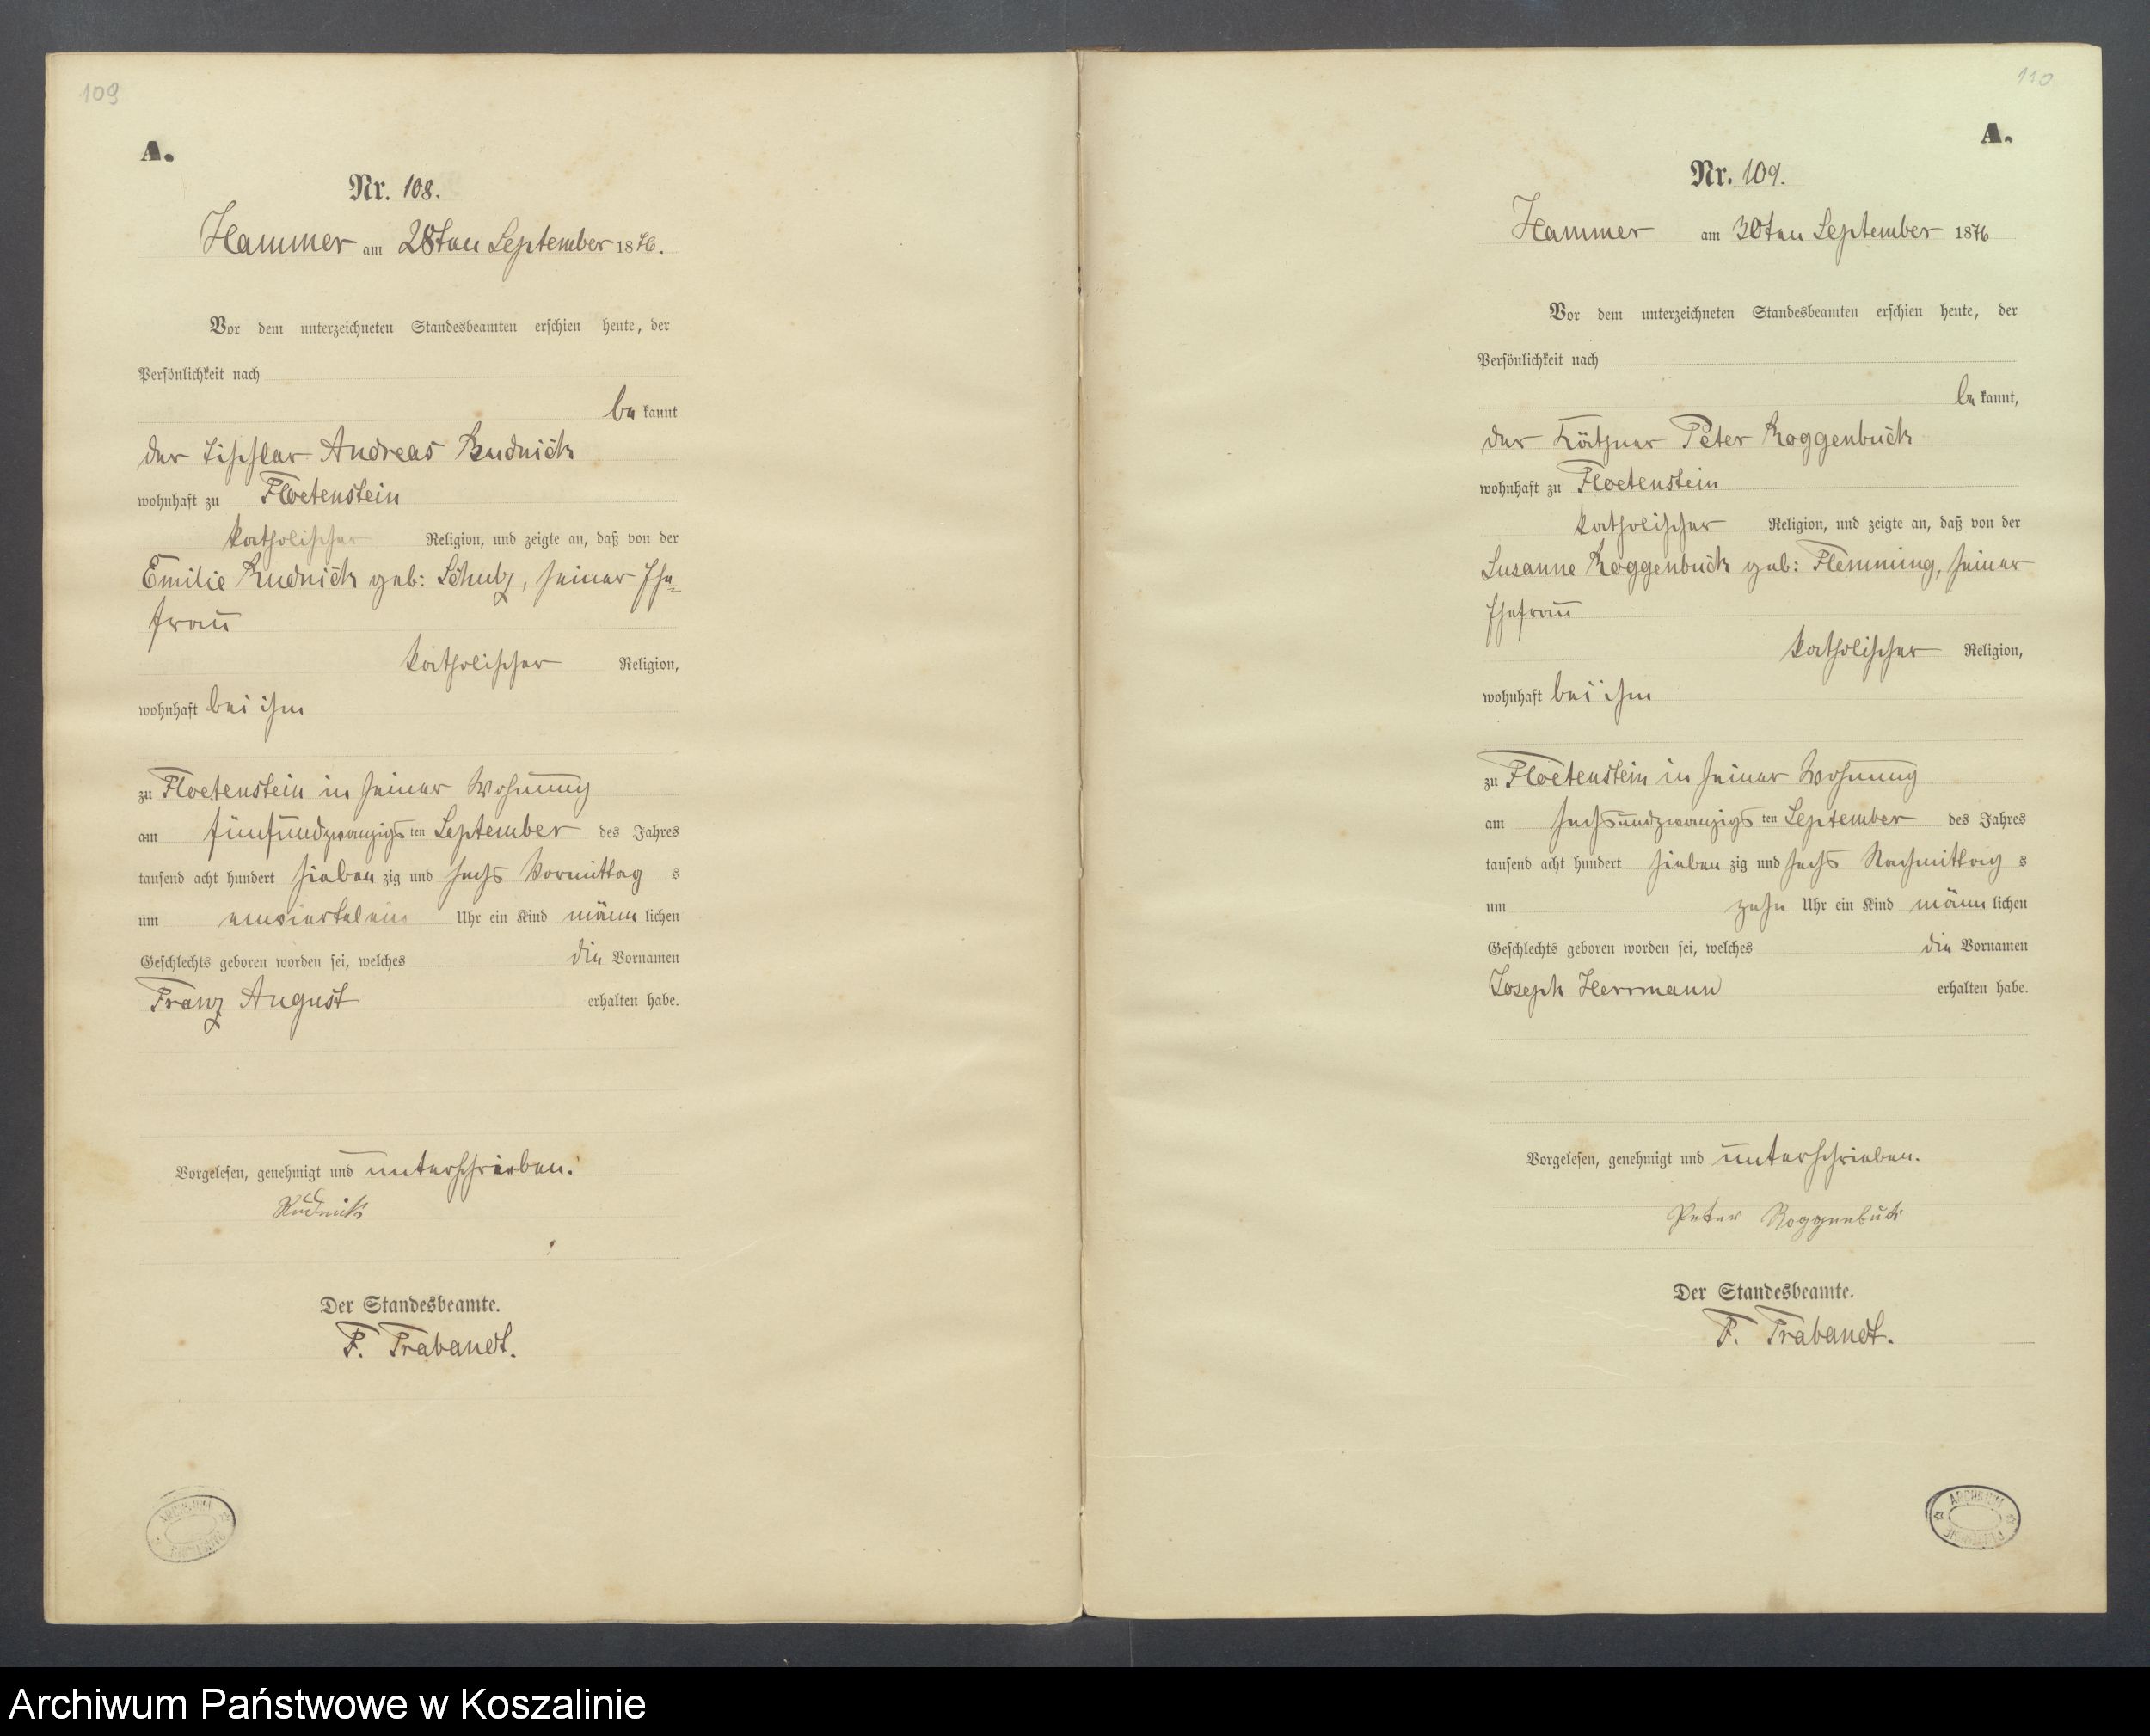 109
A.
Nr. 108.
Hammer am 28ten September 1876.
Vor dem unterzeichneten Standesbeamten erschien heute, der
Persönlichkeit nach
be kannt
der Tischler Andreas Rudnick
wohnhaft zu Floetenstein
katholischer Religion, und zeigte an, daß von der
Emilie Rudnick geb: Schulz, seiner Ehe=
frau
katholischer Religion,
wohnhaft bei ihm
zu Floetenstein in seiner Wohnung
am fünfundzwanzigs ten September des Jahres
tausend acht hundert sieben zig und sechs Vormittag s
um Uhr ein Kind männ lichen
Geschlechts geboren worden sei, welches die Vornamen
Franz August erhalten habe.
Vorgelesen, genehmigt und unterschrieben.
Rudnick
Der Standesbeamte.
F. Trabandt.
ARCHIWUM
110
A.
Nr. 109.
Hammer am 30ten September 1876
Vor dem unterzeichneten Standesbeamten erschien heute, der
Persönlichkeit nach
be kannt,
der Käthner Peter Roggenbuck
wohnhaft zu Floetenstein
katholischer Religion, und zeigte an, daß von der
Susanne Roggenbuck geb: Flemming, seiner
Ehefrau
katholischer Religion,
wohnhaft bei ihm
zu Floetenstein in seiner Wohnung
am sechsundzwanzigs ten September des Jahres
tausend acht hundert sieben zig und sechs Nachmittag s
um zehn Uhr ein Kind männ lichen
Geschlechts geboren worden sei, welches die Vornamen
Joseph Herrmann erhalten habe.
Vorgelesen, genehmigt und unterschrieben.
Peter Roggenbuck
Der Standesbeamte.
F. Trabandt.
ARCHIWUM
Archiwum Państwowe w Koszalinie